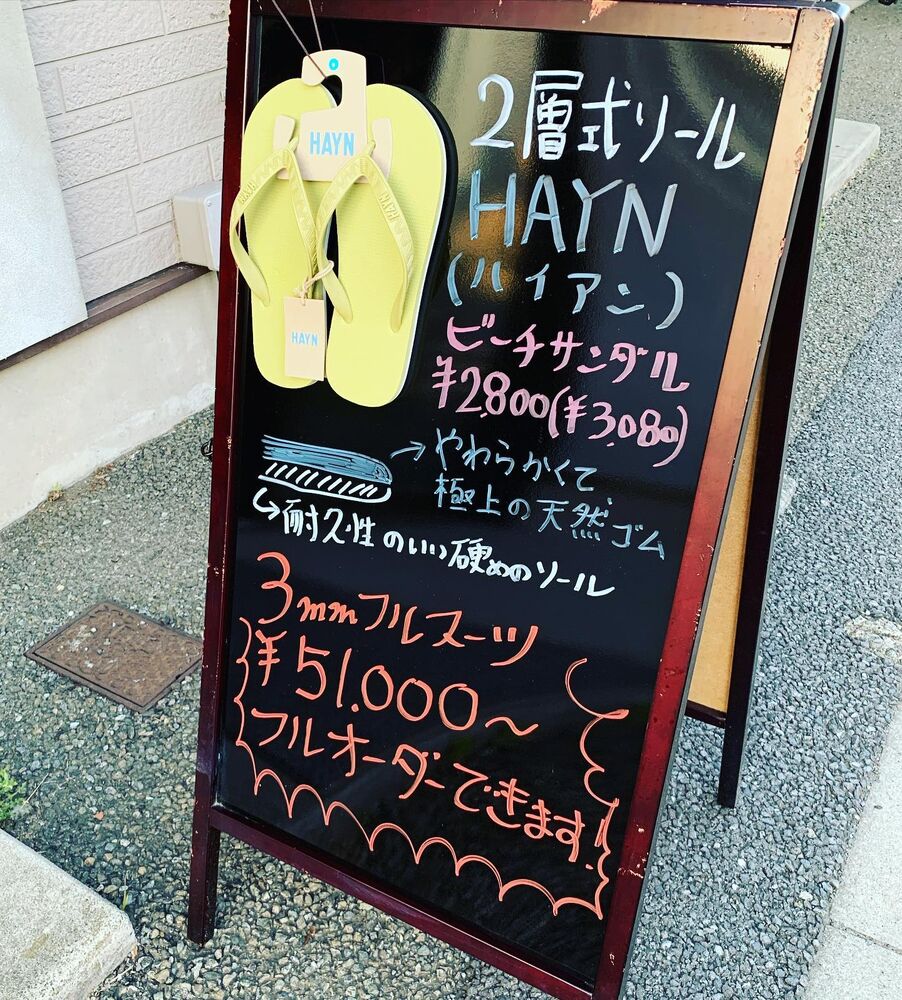 HAYN
HAYN
2層式ソール
HAYN
(ハイアン)
ビーチサンダル
¥2,800(¥3,080)
→やわらかくて
極上の天然ゴム
↳耐久性のいい硬めのソール
3mmフルスーツ
¥51.000〜
フルオーダーできます!